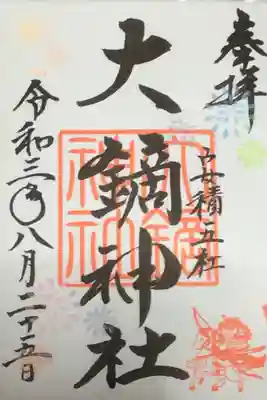 奉拝
安積五社
大鏑神社
大鏑神社
令和三年八月二十五日